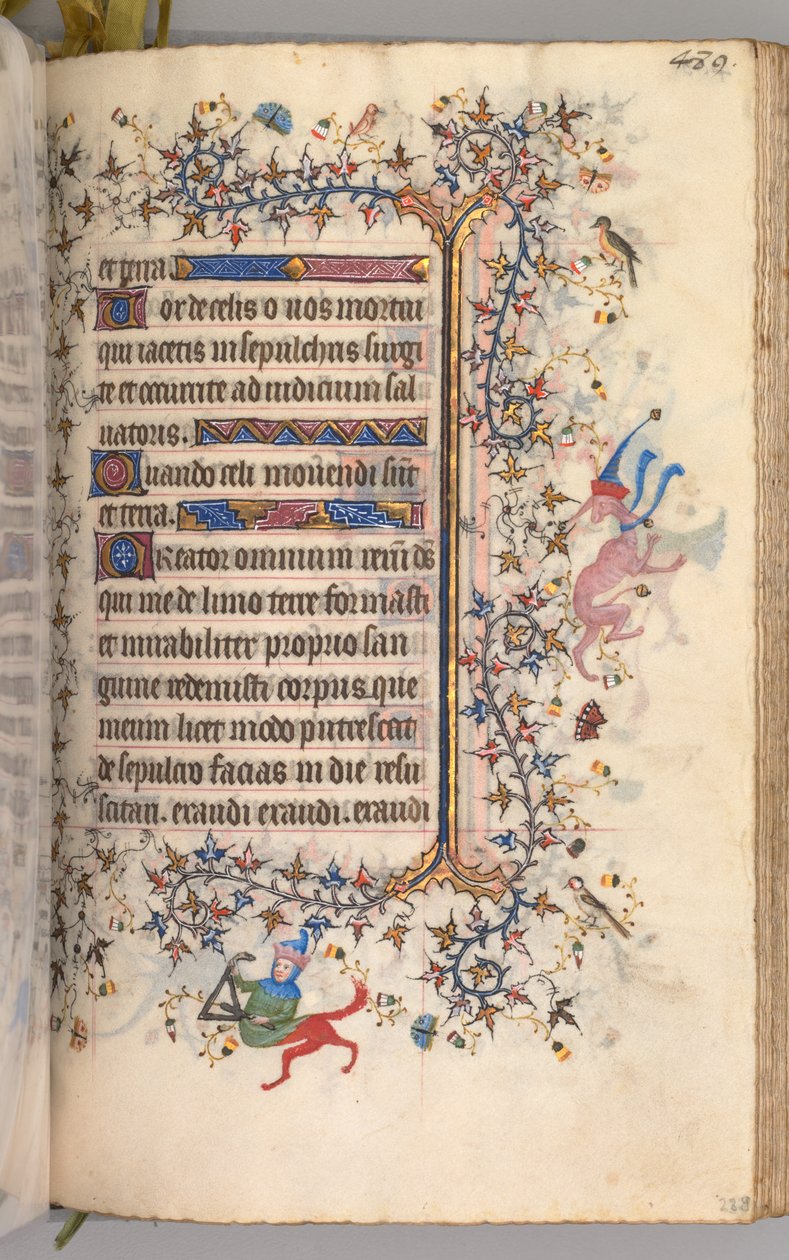 489.
et terra.
Vor de celis o uos mortui
qui iacetis in sepulchris surgi
te et occurrite ad iudicium sal
uatoris.
Quando celi mouendi sūt
et terra.
Creator omnium rerū ds̄
qui me de limo terre formasti
et mirabiliter proprio san
guine redemisti corpus que
meum licet modo putrescat
de sepulcro facias in die resu
scitari. exaudi exaudi. exaudi
238